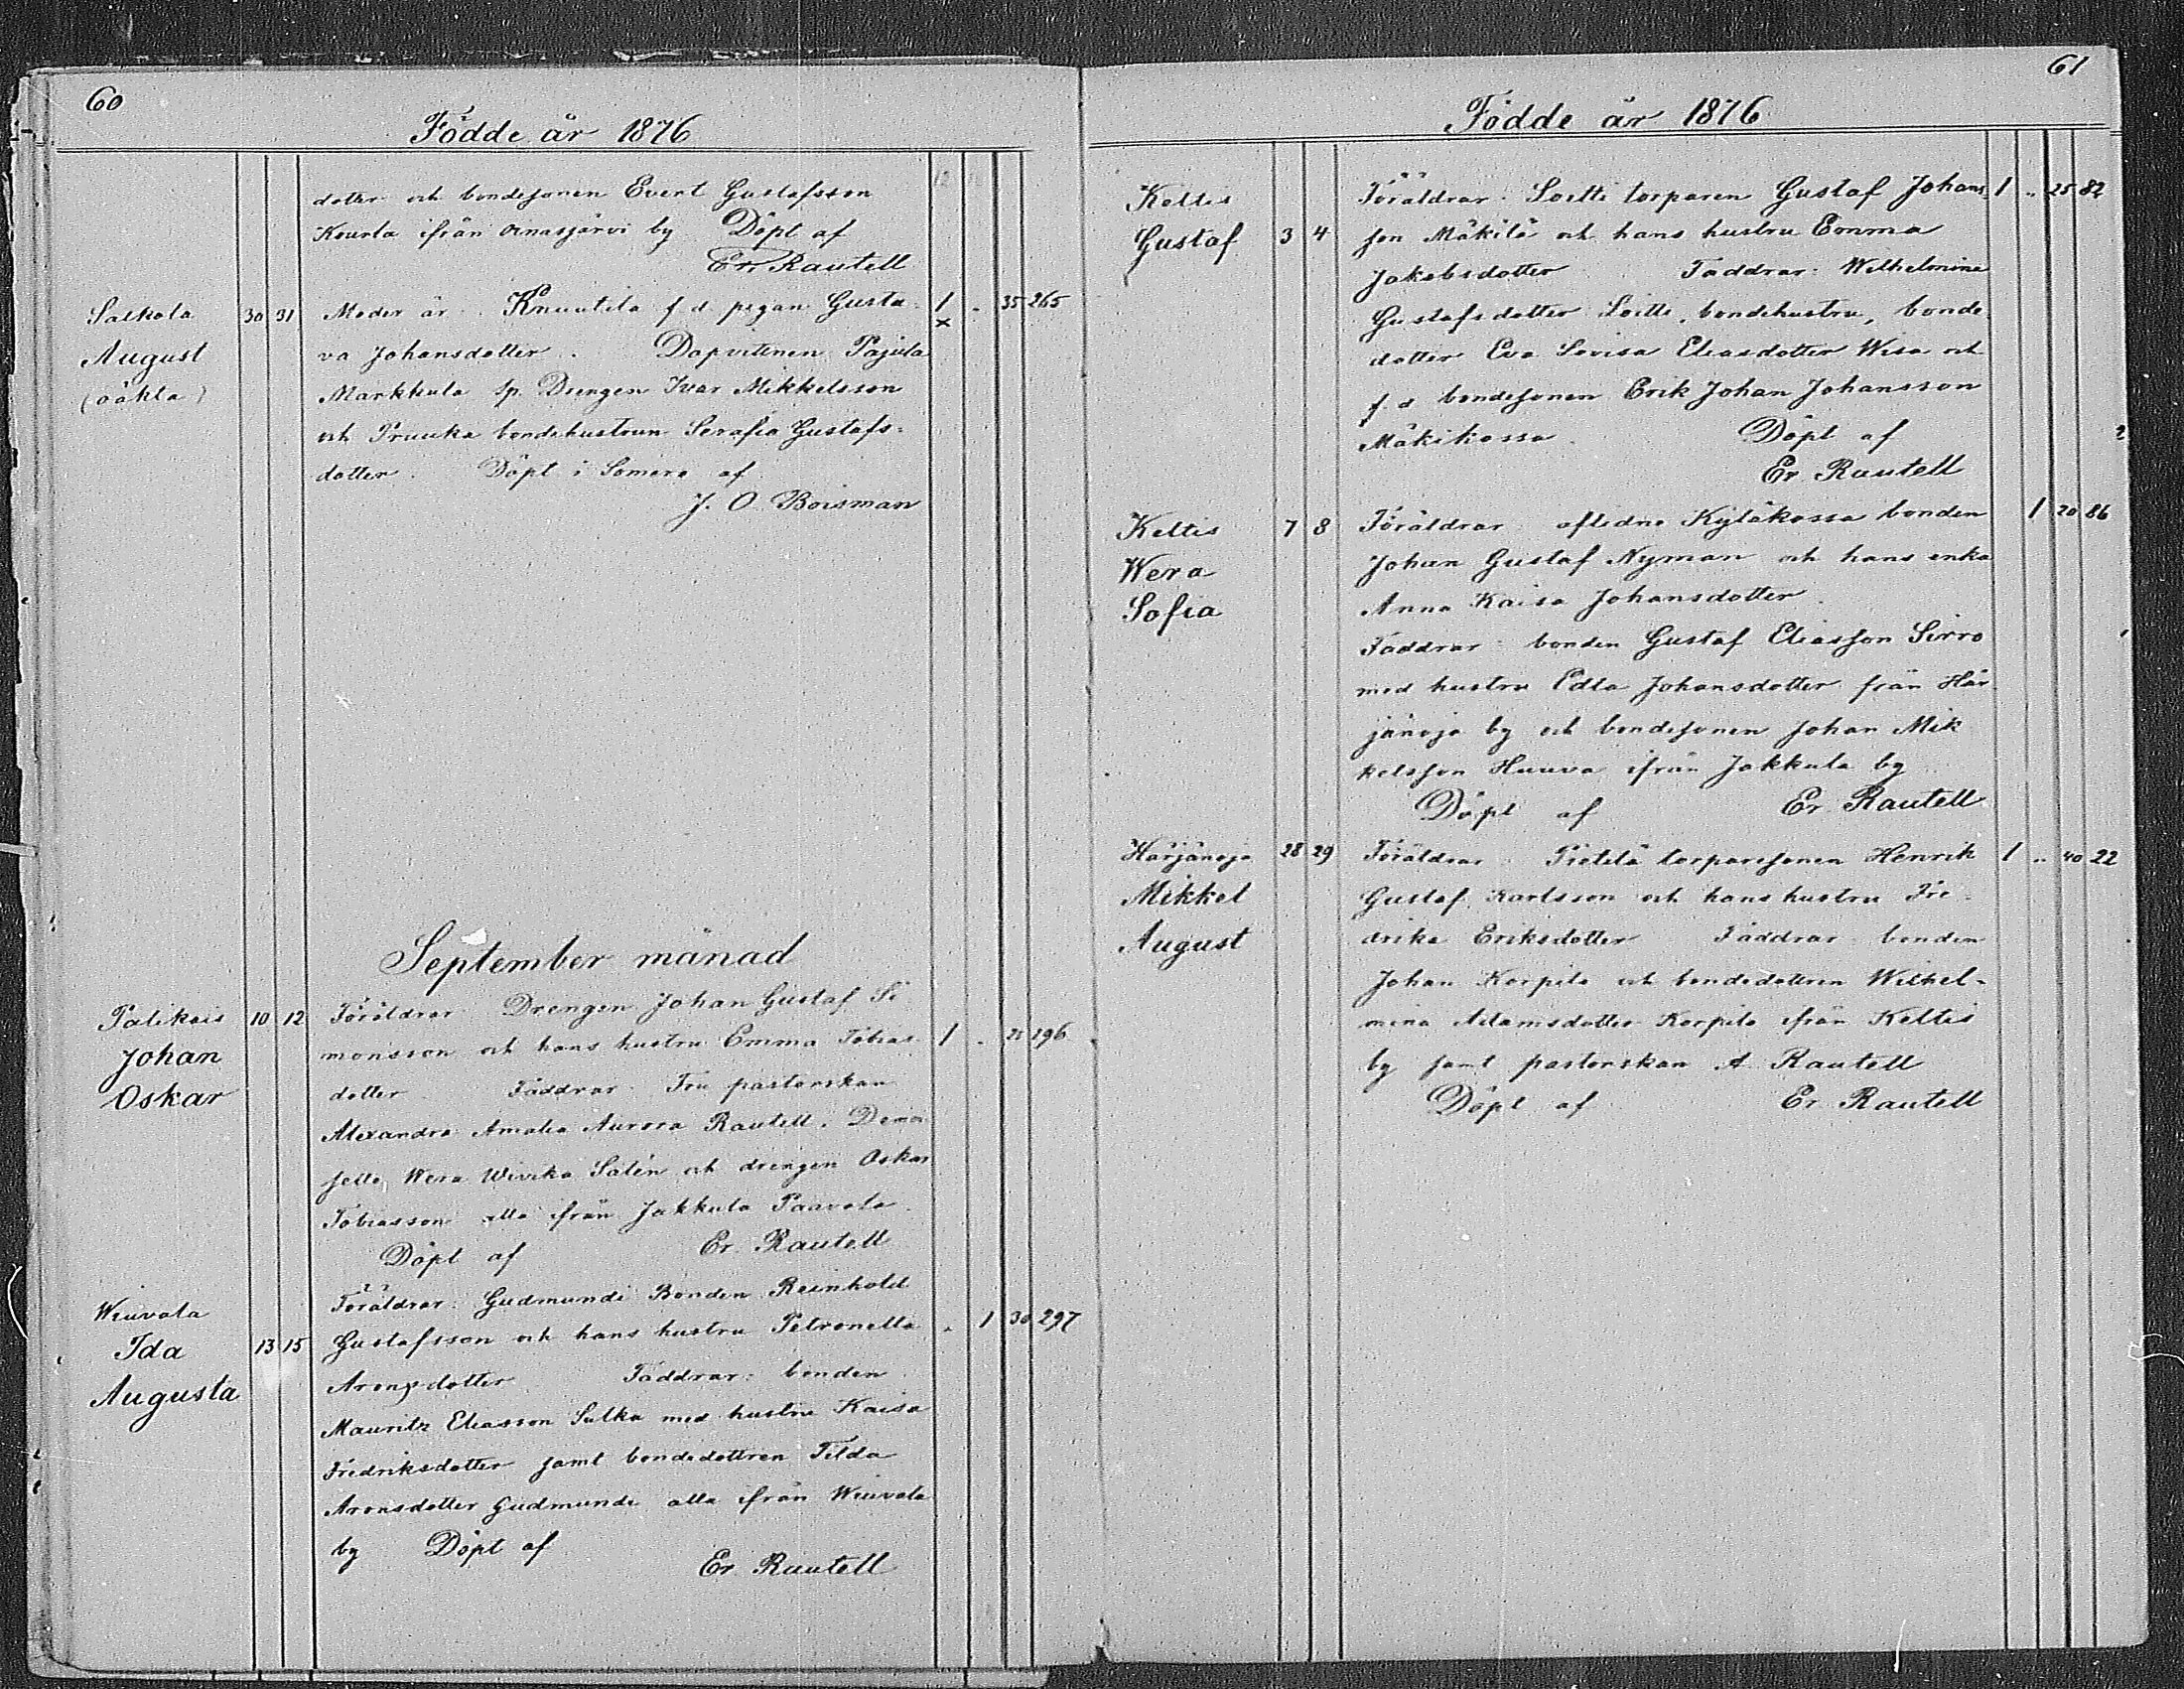 60
Födde år 1876
dotter och bondesonen Evert Gustafsson
Kourla ifrån Oinasjärvi by Döpt af
Er. Rautell
Salkola 30 31 Moder är Knuutila f d pigan Gusta- 1 35 265
August va Johansdotter. Dopvittnen Pajula ×
(oäkta) Markkula sp. Drengen Ivar Mikkelsson
och Pruuka bondehustrun Serafia Gustafs-
dotter. Döpt i Somero af
J. O. Boisman
September månad
Palikais 10 12 Föräldrar Drengen Johan Gustaf Si
Johan monsson och hans hustru Emma Tobias 1 196
Oskar dotter Faddrar Fru pastorskan
Alexandra Amalia Aurora Rautell, Demoi
selle, Wera Wivika Salén och drengen Oskar
Tobiasson alla ifrån Jakkula Paavola.
Döpt af Er. Rautell
Wiuvala Föräldrar: Gudmundi Bonden Reinhold
Ida 13 15 Gustafsson och hans hustru Petronella 1 30 297
Augusta Aronsdotter Faddrar: bonden
Mauritz Eliasson Sulka med hustru Kaisa
Fredriksdotter samt bondedottren Tilda
Aronsdotter Gudmundi alla ifrån Wiuvala
by Döpt af
Er Rautell
61
Födde år 1876
Keltis Föräldrar Loitti torparen Gustaf Johans- 1 25 82
Gustaf 3 4 son Mäkilä och hans hustru Emma
Jakobsdotter Faddrar: Wilhelmina
Gustafsdotter Loitti, bondehustru, bonde-
dotter Eva Lovisa Eliasdotter Wisa och
f. d bondesonen Erik Johan Johansson
Mäkikossa. Döpt af
Er Rautell
Keltis 7 8 Föräldrar aflidne Kyläkossa bonden 1 20 86
Wera Johan Gustaf Nyman och hans enka
Sofia Anna Kaisa Johansdotter.
Faddrar: bonden Gustaf Eliasson Sirro
med hustru Edla Johansdotter från Här-
jänoja by och bondesonen Johan Mik
kelsson Huuva ifrån Jakkula by
Döpt af Er. Rautell
Härjänoja 28 29 Föräldrar Pietilä torparesonen Henrik 1 40 22
Mikkel Gustaf Karlsson och hans hustru Fre-
August drika Eriksdotter Faddrar bonden
Johan Korpela och bondedottren Wilhel-
mina Adamsdotter Korpela ifrån Keltis
by samt pastorskan A Rautell
Döpt af Er. Rautell